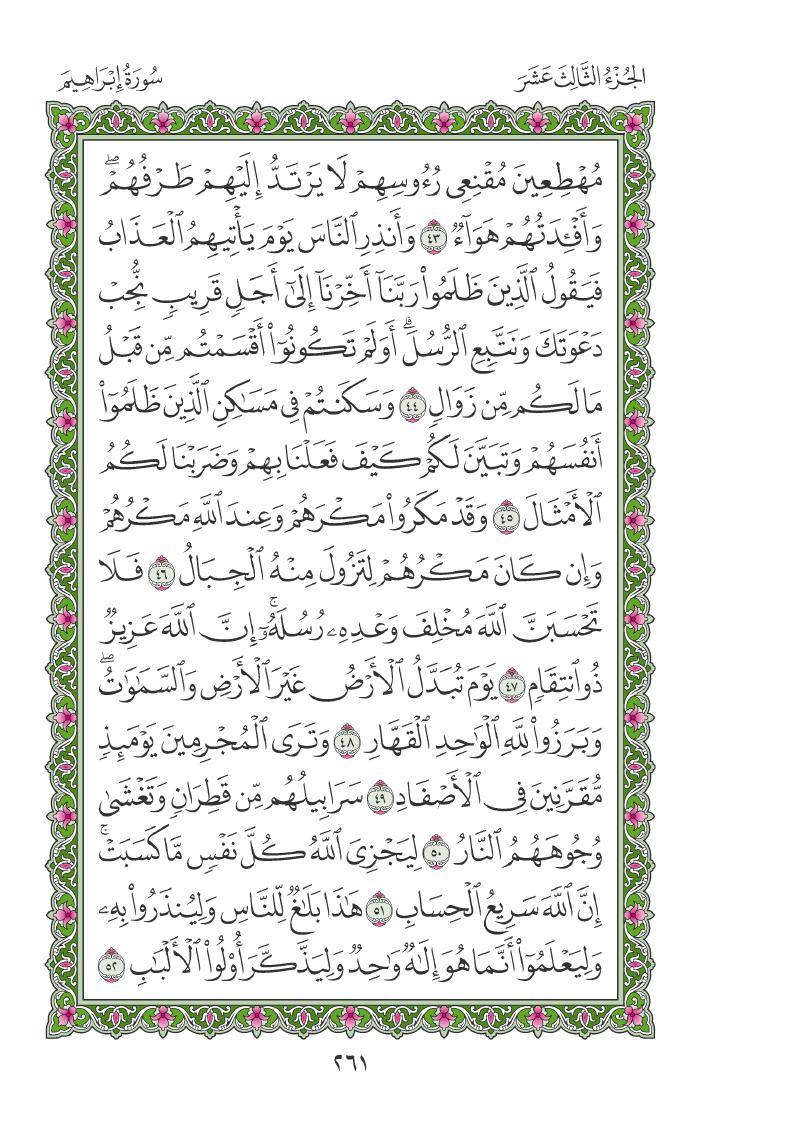 الجُزْءُ الثَّالِثَ عَشَرَ
سُورَةُ إِبْرَاهِيمَ
مُهۡطِعِينَ مُقۡنِعِي رُءُوسِهِمۡ لَا يَرۡتَدُّ إِلَيۡهِمۡ طَرۡفُهُمۡۖ
وَأَفۡـِٔدَتُهُمۡ هَوَآءٞ ٤٣ وَأَنذِرِ ٱلنَّاسَ يَوۡمَ يَأۡتِيهِمُ ٱلۡعَذَابُ
فَيَقُولُ ٱلَّذِينَ ظَلَمُواْ رَبَّنَآ أَخِّرۡنَآ إِلَىٰٓ أَجَلٖ قَرِيبٖ نُّجِبۡ
دَعۡوَتَكَ وَنَتَّبِعِ ٱلرُّسُلَۗ أَوَلَمۡ تَكُونُوٓاْ أَقۡسَمۡتُم مِّن قَبۡلُ
مَا لَكُم مِّن زَوَالٖ ٤٤ وَسَكَنتُمۡ فِي مَسَٰكِنِ ٱلَّذِينَ ظَلَمُوٓاْ
أَنفُسَهُمۡ وَتَبَيَّنَ لَكُمۡ كَيۡفَ فَعَلۡنَا بِهِمۡ وَضَرَبۡنَا لَكُمُ
ٱلۡأَمۡثَالَ ٤٥ وَقَدۡ مَكَرُواْ مَكۡرَهُمۡ وَعِندَ ٱللَّهِ مَكۡرُهُمۡ
وَإِن كَانَ مَكۡرُهُمۡ لِتَزُولَ مِنۡهُ ٱلۡجِبَالُ ٤٦ فَلَا
تَحۡسَبَنَّ ٱللَّهَ مُخۡلِفَ وَعۡدِهِۦ رُسُلَهُۥٓۚ إِنَّ ٱللَّهَ عَزِيزٞ
ذُو ٱنتِقَامٖ ٤٧ يَوۡمَ تُبَدَّلُ ٱلۡأَرۡضُ غَيۡرَ ٱلۡأَرۡضِ وَٱلسَّمَٰوَٰتُۖ
وَبَرَزُواْ لِلَّهِ ٱلۡوَٰحِدِ ٱلۡقَهَّارِ ٤٨ وَتَرَى ٱلۡمُجۡرِمِينَ يَوۡمَئِذٖ
مُّقَرَّنِينَ فِي ٱلۡأَصۡفَادِ ٤٩ سَرَابِيلُهُم مِّن قَطِرَانٖ وَتَغۡشَىٰ
وُجُوهَهُمُ ٱلنَّارُ ٥٠ لِيَجۡزِيَ ٱللَّهُ كُلَّ نَفۡسٖ مَّا كَسَبَتۡۚ
إِنَّ ٱللَّهَ سَرِيعُ ٱلۡحِسَابِ ٥١ هَٰذَا بَلَٰغٞ لِّلنَّاسِ وَلِيُنذَرُواْ بِهِۦ
وَلِيَعۡلَمُوٓاْ أَنَّمَا هُوَ إِلَٰهٞ وَٰحِدٞ وَلِيَذَّكَّرَ أُوْلُواْ ٱلۡأَلۡبَٰبِ ٥٢
٢٦١